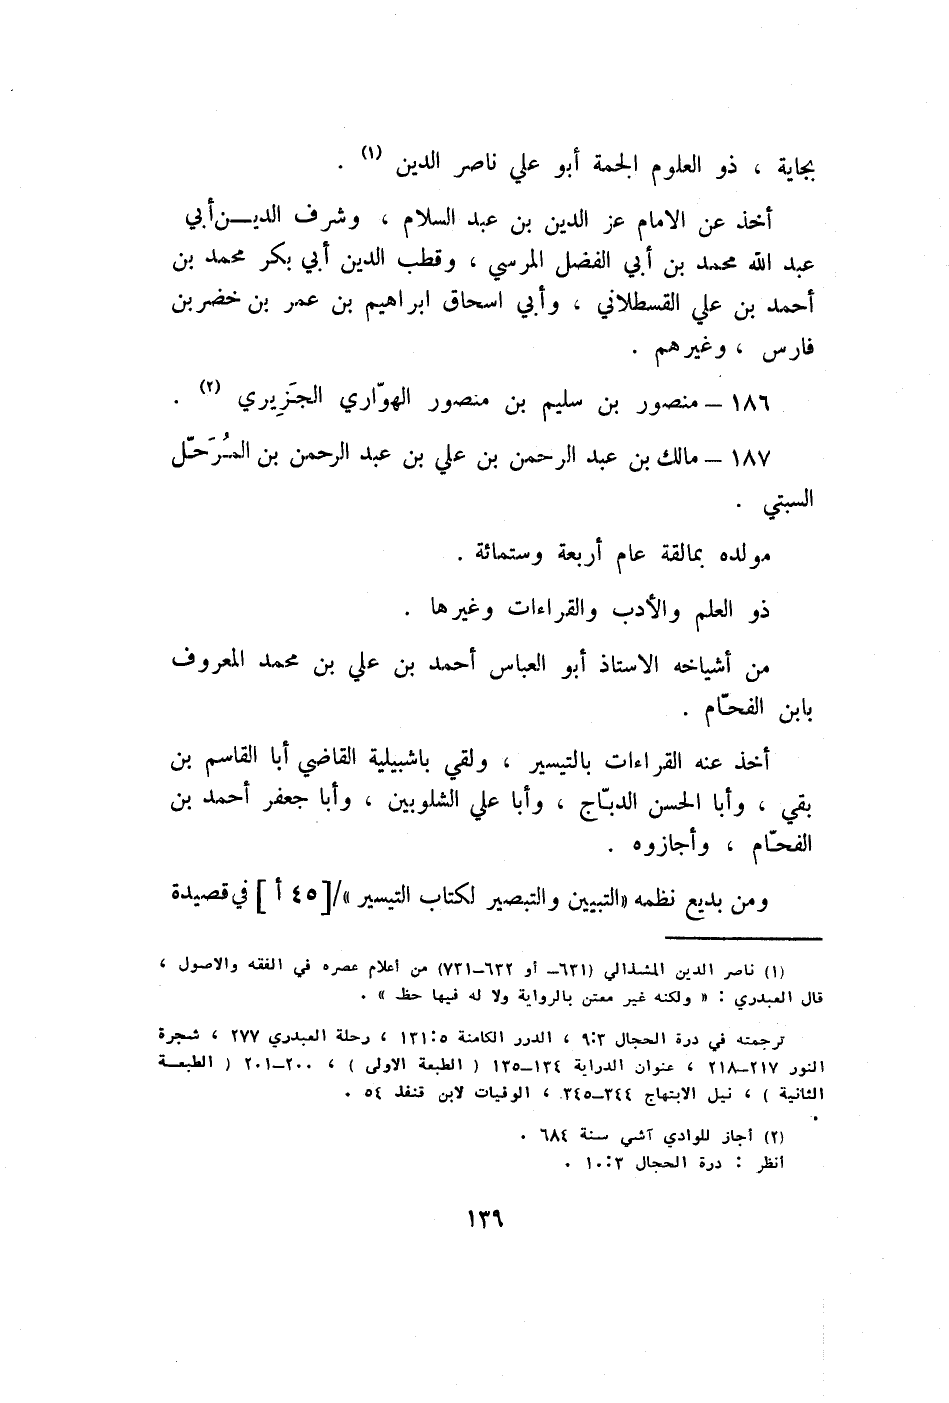 بجاية ، ذو العلوم الجمة أبو علي ناصر الدين (١) .
أخذ عن الامام عز الدين بن عبد السلام ، وشرف الديـــن أبي
عبد الله محمد بن أبي الفضل المرسي ، وقطب الدين أبي بكر محمد بن
أحمد بن علي القسطلاني ، وأبي اسحاق ابراهيم بن عمر بن خضر بن
فارس ، وغيرهم .
١٨٦ ــ منصور بن سليم بن منصور الهوّاري الجَزِيري (٢) .
١٨٧ ــ مالك بن عبد الرحمن بن علي بن عبد الرحمن بن المُرَحّل
السبتي .
مولده بمالقة عام أربعة وستمائة .
ذو العلم والأدب والقراءات وغيرها .
من أشياخه الاستاذ أبو العباس أحمد بن علي بن محمد المعروف
بابن الفحّام .
أخذ عنه القراءات بالتيسير ، ولقي باشبيلية القاضي أبا القاسم بن
بقي ، وأبا الحسن الدبّاج ، وأبا علي الشلوبين ، وأبا جعفر أحمد بن
الفحّام ، وأجازوه .
ومن بديع نظمه «التبيين والتبصير لكتاب التيسير »/[٤٥ أ ] في قصيدة
(١) ناصر الدين المشذالي (٦٣١ــ أو ٦٣٢ــ٧٣١) من أعلام عصره في الفقه والاصول ،
قال العبدري : « ولكنه غير معتن بالرواية ولا له فيها حظ » .
ترجمته في درة الحجال ٩:٣ ، الدرر الكامنة ١٣١:٥ ، رحلة العبدري ٢٧٧ ، شجرة
النور ٢١٧ــ٢١٨ ، عنوان الدراية ١٣٤ــ١٣٥ ( الطبعة الاولى ) ، ٢٠٠ــ٢٠١ ( الطبعــة
الثانية ) ، نيل الابتهاج ٣٤٤ــ٣٤٥ ، الوفيات لابن قنفذ ٥٤ .
(٢) أجاز للوادي آشي سنة ٦٨٤ .
أنظر : درة الحجال ١٠:٣ .
١٣٩